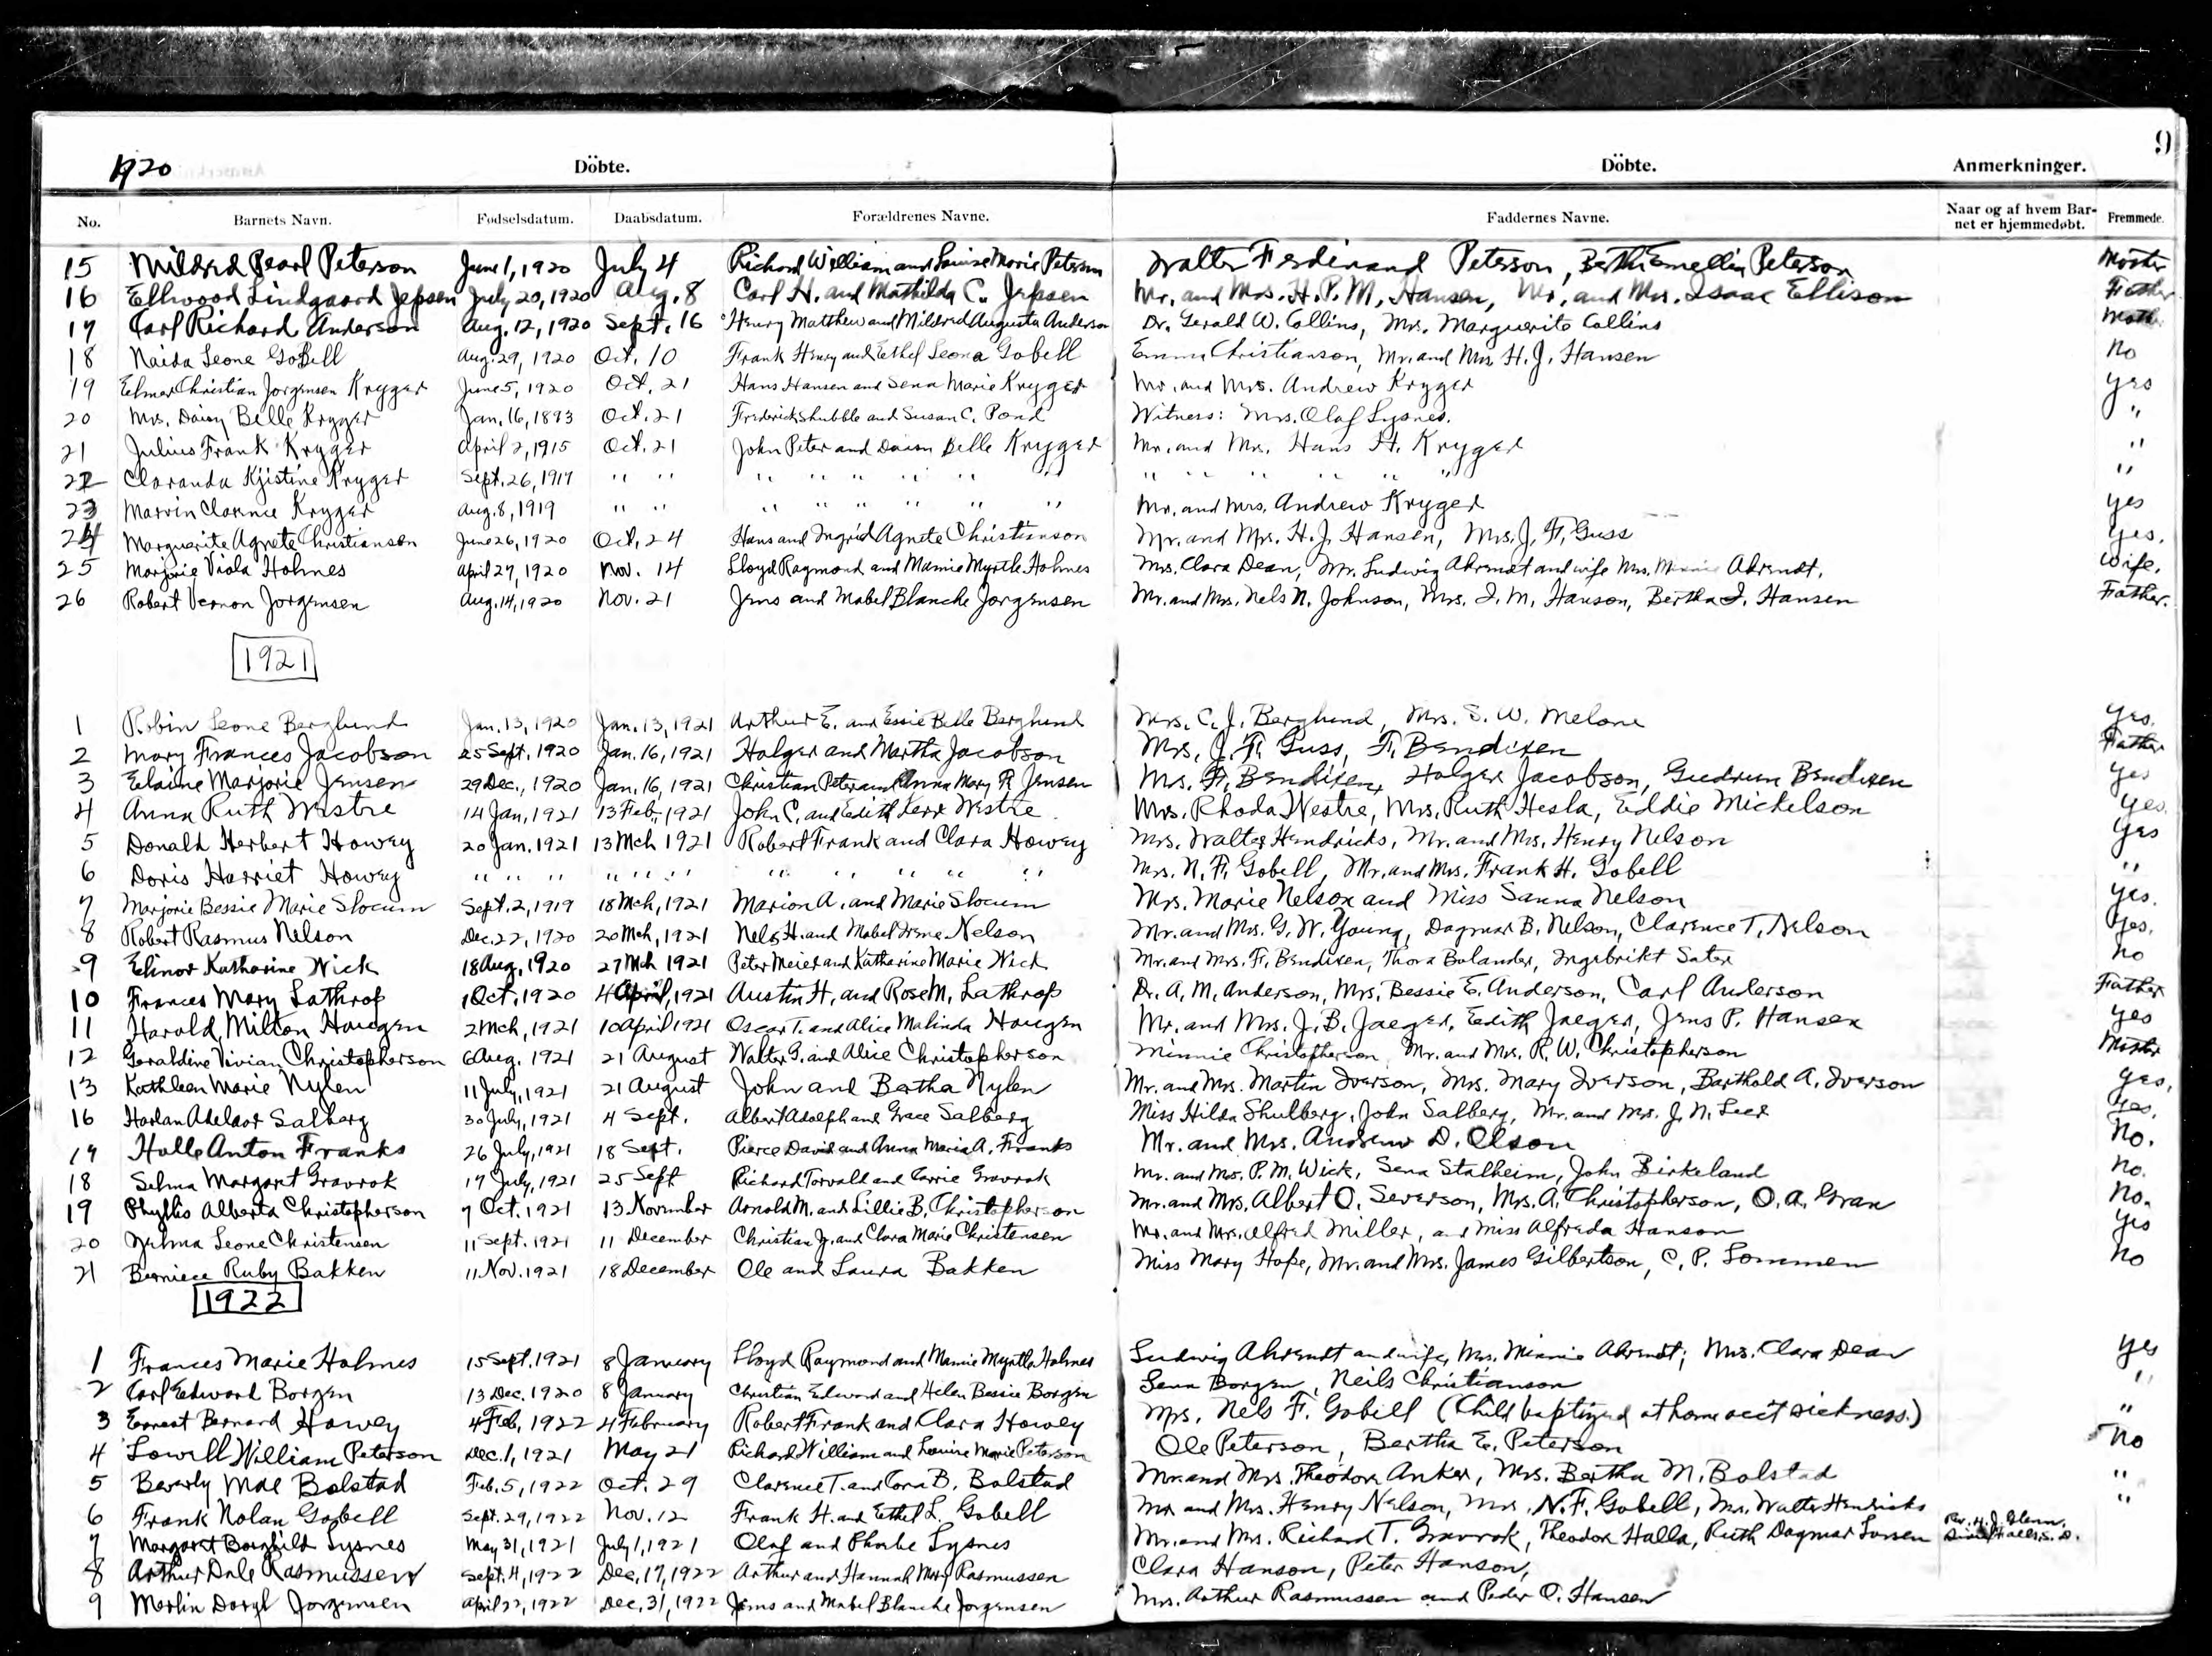 9
1920 Döbte. Döbte. Anmerkninger.
No. Barnets Navn. Fødselsdatum. Daabsdatum. Forældrenes Navne. Faddernes Navne. Naar og af hvem Bar-
net er hjemmedøbt. Fremmede.
15 Mildred Pearl Peterson June 1, 1920 July 4 Richard William and Louise Marie Peterson Walter Ferdinand Peterson, Peterson Mother
16 Ellwood Lindgaard Jepsen July 20, 1920 Aug. 8 Carl H. and Mathilda C. Jepsen Mr. and Mrs. H. P. M. Hansen, Mr. and Mrs. Isaac Ellison Father
17 Carl Richard Anderson Aug. 12, 1920 Sept. 16 Henry Matthew and Mildred Augusta Anderson Dr. Gerald W. Collins, Mrs. Marguerite Collins Moth
18 Naida Leone Gobell Aug. 29, 1920 Oct. 10 Frank Henry and Ethel Leona Gobell Emma Christianson, Mr. and Mrs. H. J. Hansen No
19 Elmer Christian Jorgensen Kryger June 5, 1920 Oct. 21 Hans Hansen and Sena Marie Kryger Mr. and Mrs. Andrew Kryger yes
20 Mrs. Daisy Belle Kryger Jan. 16, 1893 Oct. 21 Frederick and Susan C. Pond Witness: Mrs. Olaf Lysnes. "
21 Julius Frank Kryger April 2, 1915 Oct. 21 John Peter and Daisy Belle Kryger Mr. and Mrs. Hans H. Kryger "
22 Claranda Kjistine Kryger Sept. 26, 1917 " " " " " " " " " " " " " " "
23 Marvin Clarence Kryger Aug. 8, 1919 " " " " " " " " Mr. and Mrs. Andrew Kryger yes
24 Marguerite Agnete Christianson June 26, 1920 Oct. 24 Hans and Ingrid Agnete Christianson Mr. and Mrs. H. J. Hansen, Mrs. J. F. Guss yes.
25 Marjorie Viola Holmes April 27, 1920 Nov. 14 Lloyd Raymond and Mamie Myrtle Holmes Mrs. Clara Dean, Mr. Ludwig Ahrendt and wife Mrs. Minnie Ahrendt. Wife.
26 Robert Vernon Jorgensen Aug. 14, 1920 Nov. 21 Jens and Mabel Blanche Jorgensen Mr. and Mrs. Nels N. Johnson, Mrs. I. M. Hanson, Bertha I. Hansen Father.
1921
1 Robin Leone Berglund Jan. 13, 1920 Jan. 13, 1921 Arthur E. and Essie Belle Berglund Mrs. C. J. Berglund, Mrs. S. W. Melone yes.
2 Mary Frances Jacobson 25 Sept. 1920 Jan. 16, 1921 Holger and Martha Jacobson Mrs. J. F. Guss, F. Bendixen Father
3 Elaine Marjorie Jensen 29 Dec., 1920 Jan. 16, 1921 Christian Peter and Anna Mary R. Jensen Mrs. F. Bendixen, Holger Jacobson, Gudrun Bendixen yes
4 Anna Ruth Westre 14 Jan, 1921 13 Feb., 1921 John C. and Edith Westre. Mrs. Rhoda Westre, Mrs. Ruth Hesla, Eddie Mickelson yes.
5 Donald Herbert Howey 20 Jan. 1921 13 Mch 1921 Robert Frank and Clara Howey Mrs. Walter Hendricks, Mr. and Mrs. Henry Nelson yes
6 Doris Harriet Howey " " " " " " " " " " " " Mrs. N. F. Gobell, Mr. and Mrs. Frank H. Gobell "
7 Marjorie Bessie Marie Slocum Sept. 2, 1919 18 Mch, 1921 Marion A. and Marie Slocum Mrs. Marie Nelson and Miss Sanna Nelson yes.
8 Robert Rasmus Nelson Dec. 22, 1920 20 Mch, 1921 Nels H. and Mabel Irene Nelson Mr. and Mrs. G. W. Young, Dagmar B. Nelson, Clarence T. Nelson yes.
9 Elinor Katharine Wick 18 Aug. 1920 27 Mch 1921 Peter Meier and Katharine Marie Wick Mr. and Mrs. F. Bendixen, Thora Bolander, Ingebrikt Sater no
10 Frances Mary Lathrop 1 Oct. 1920 4 April, 1921 Austin H. and Rose M. Lathrop Dr. A. M. Anderson, Mrs. Bessie E. Anderson, Carl Anderson Father
11 Harold Milton Haugen 2 Mch, 1921 10 April 1921 Oscar T. and Alice Malinda Haugen Mr. and Mrs. J. B. Jaeger, Edith Jaeger, Jens P. Hansen yes
12 Geraldine Vivian Christopherson 6 Aug. 1921 21 August Walter G. and Alice Christopherson Minnie Christopherson, Mr. and Mrs. R. W. Christopherson Mother
13 Kathleen Marie Nylen 11 July, 1921 21 August John and Bertha Nylen Mr. and Mrs. Martin Iverson, Mrs. Mary Iverson, Barthold A. Iverson yes.
16 Harlan Adelaor Salberg 30 July, 1921 4 Sept. Albert Adolph and Grace Salberg Miss Hilda Shulberg, John Salberg, Mr. and Mrs. J. N. Leer yes.
17 Halle Anton Franks 26 July, 1921 18 Sept. Pierce David and Anna Maria A. Franks Mr. and Mrs. Andrew D. Olson No.
18 Selma Margaret Gravrok 17 July, 1921 25 Sept Richard Torvald and Carrie Gravrok Mr. and Mrs. P. M. Wick, Sena Stalheim, John Birkeland No.
19 Phyllis Alberta Christopherson 7 Oct. 1921 13 November Arnold M. and Lillie B. Christopherson Mr. and Mrs. Albert O. Severson, Mrs. A. Christopherson, O. A. Gran No.
20 Leone Christensen 11 Sept. 1921 11 December Christian J. and Clara Marie Christensen Mr. and Mrs. Alfred Miller, and Miss Alfreda Hanson yes
21 Berniece Ruby Bakken 11 Nov. 1921 18 December Ole and Laura Bakken Miss Mary Hope, Mr. and Mrs. James Gilbertson, C. P. Lommen No
1922
1 Frances Marie Holmes 15 Sept. 1921 8 January Lloyd Raymond and Mamie Myrtle Holmes Ludwig Ahrendt and wife, Mrs. Minnie Ahrendt; Mrs. Clara Dean yes
2 Carl Edward Borgen 13 Dec. 1920 8 January Christian Edward and Helen Bessie Borgen Sena Borgen, Neils Christianson "
3 Ernest Bernard Howey 4 Feb, 1922 4 February Robert Frank and Clara Howey Mrs. Nels F. Gobell (Child baptized at home acc't sickness.) "
4 Lowell William Peterson Dec. 1, 1921 May 21 Richard William and Louise Marie Peterson Ole Peterson, Bertha E. Peterson No
5 Beverly Mae Bolstad Feb. 5, 1922 Oct. 29 Clarence T. and Cora B. Bolstad Mr. and Mrs. Theodore Anker, Mrs. Bertha M. Bolstad "
6 Frank Nolan Gobell Sept. 29, 1922 Nov. 12 Frank H. and Ethel L. Gobell Mr. and Mrs. Henry Nelson, Mrs. N. F. Gobell, Mrs. Walter Hendricks "
7 Margaret Borghild Lysnes May 31, 1921 July 1, 1921 Olaf and Phoebe Lysnes Mr. and Mrs. Richard T. Gravrok, Theodor Halla, Ruth Dagmar Larsen Rev. H. J. Glenn,
Sioux Falls S. D.
8 Arthur Dale Rasmussen Sept. 4, 1922 Dec. 17, 1922 Arthur and Hannah Mary Rasmussen Clara Hanson, Peter Hanson,
9 Merlin Daryl Jorgensen April 22, 1922 Dec. 31, 1922 Jens and Mabel Blanche Jorgensen Mrs. Arthur Rasmussen and Peder O. Hansen